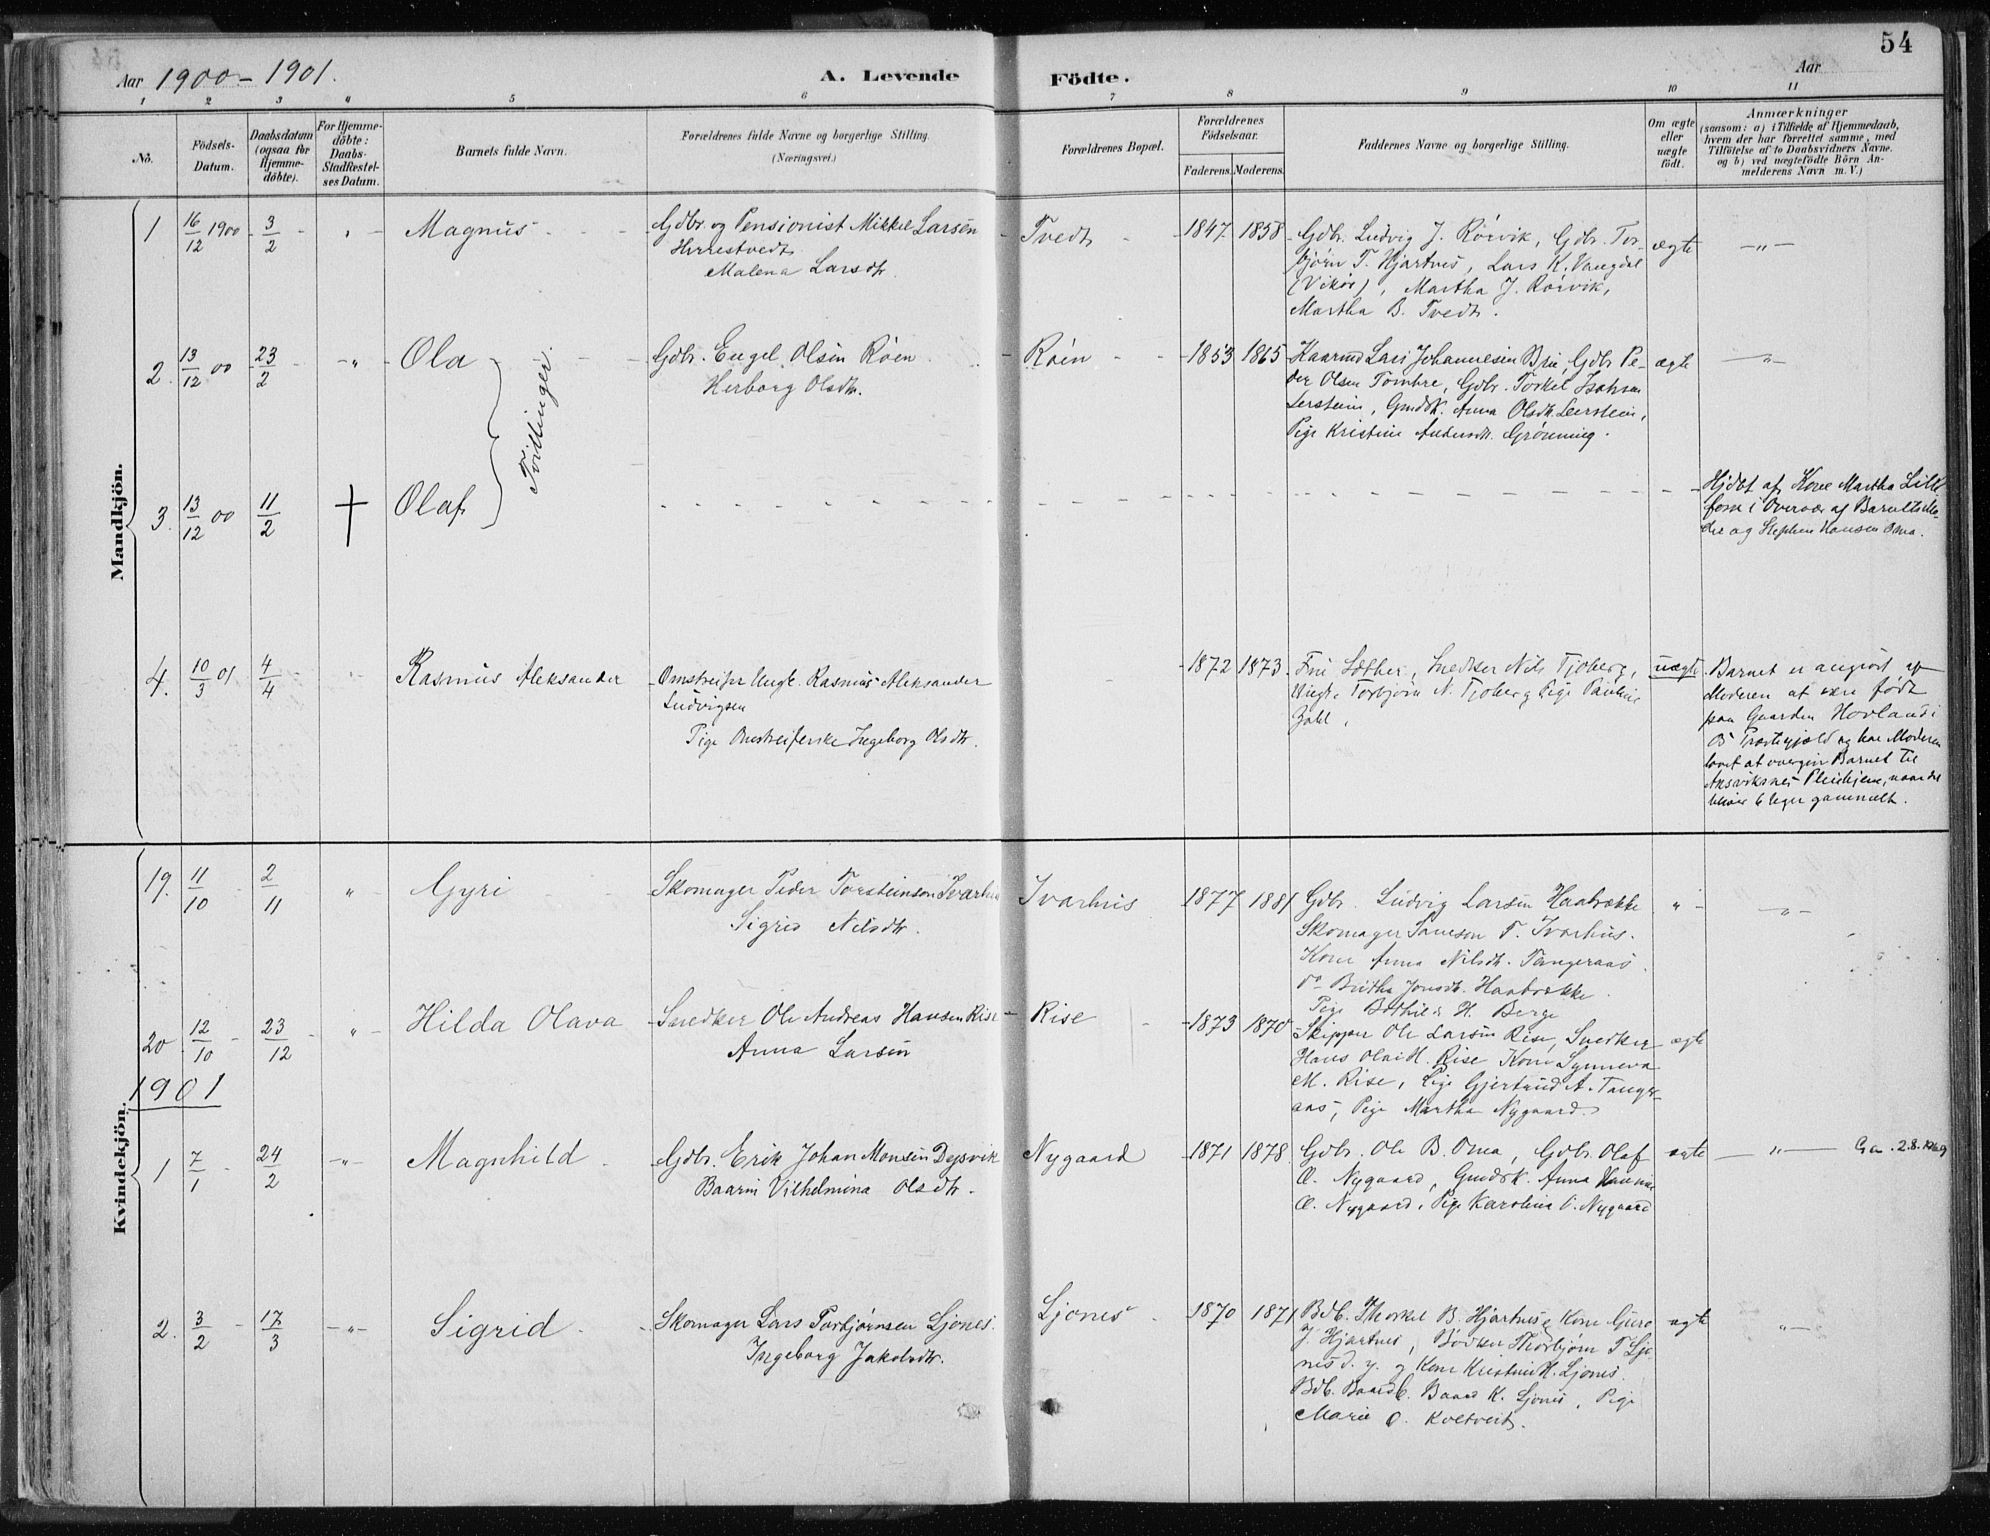 54
Aar 1900-1901.
A. Levende Födte.
Aar
1 2 3 4 5 6 7 8 9 10 11
No.
Födsels-
Datum.
Daabsdatum
(ogsaa for
Hjemme-
döbte).
For Hjemme-
döbte:
Daabs-
Stadfæstel-
ses Datum.
Barnets fulde Navn.
Forældrenes fulde Navne og borgerlige Stilling.
(Næringsvei.)
Forældrenes Bopæl.
Forældrenes
Födselsaar.
Faderens. Moderens.
Faddernes Navne og borgerlige Stilling.
Om ægte
eller
uægte
födt.
Anmærkninger
(saasom: a) i Tilfælde af Hjemmedaab,
hvem der har forrettet samme, med
Tilföielse af to Daabsvidners Navne.
og b) ved uægtefödte Börn An-
melderens Navn m. V.)
Mandkjön.
1 16/12 1900 3/2 " Magnus
Gdbr. og Pensionist Mikkel Larsen
Herrestvedt
Malena Larsdtr.
Tvedt 1847 1858
Gdbr. Ludvig J. Rörvik, Gdbr. Tor-
björn T. Hjartnes, Lars K. Vangdal
(Vikör), Martha J. Rörvik,
Martha B. Tvedt.
ægte — " —
2. 13/12 00 23/2 " Ola
Tvillinger.
Gdbr. Engel Olsen Röen
Herborg Olsdtr.
Röen 1853 1865
Lars Johannesen Brie, Gdbr. Pe-
der Olsen Tombre, Gdbr. Torkel
Leerstein, Gmdsk. Anna Olsdtr. Leerstein,
Pige Kristine Andersdtr. Grönning.
ægte "
3. 13/12 00 11/2 † Olaf
Hjdbt af Kone Martha Lill
fosse i Overvær af Barnets Mo-
der og Stephen Hansen Oma.
4. 10/3 01 4/4 Rasmus Aleksander
Omstreifer Ungk. Rasmus Aleksander
Ludvigsen
Pige Omstreiferske Ingeborg Olsdtr.
1872 1873
Fru Sæther, Snedker Nils Tjoberg,
Ungk. Torbjörn N. Tjoberg Pige Pauline
Zahl.
uægte
Barnet er angivet af
Moderen at være födt
paa Gaarden Hovland i
Ö Præstegjæld og har Moderen
lovet at overgive Barnet til
Pleiehjem, naar det
bliver 6 Uger gammelt.
Kvindekjön.
19. 11/10 2/11 " Gyri
Skomager Peder Torsteinson Ivarhus
Sigrid Nilsdtr.
Ivarhus 1877 1881
Gdbr. Ludvig Larsen Haabrække
Skomager Samson T. Ivarhus.
Kone Anna Nilsdtr. Tangeraas.
do Britha Jonsdtr. Haabrække.
Pige Bothild H. Berge
" "
20 12/10 23/12 " Hilda Olava
Snedker Ole Andreas Hansen Rise
Anna Larsen
Rise 1873 1870
Skipper Ole Larsen Rise, Snedker
Hans Olai H. Rise Kone Synneva
M. Rise, Pige Gjertrud A. Tanger-
aas, Pige Martha Nygaard.
ægte
1901
1 7/1 24/2 " Magnhild
Gdbr. Erik Johan Monsen Dysvik
Baarni Vilhelmina Olsdtr.
Nygaard 1871 1878
Gdbr. Ole B. Oma, Gdbr. Olaf
O. Nygaard, Gmdsk. Anna Hanna
O. Nygaard, Pige Karolina O. Nygaard
ægte " 2.8.1969
2. 3/2 17/3 " Sigrid
Skomager Lars Torbjörnsen Ljones.
Ingeborg Jakobsdtr.
Ljones 1870 1871
Bdb. Thorkel B. Hjartnes, Kone Guro
J. Hjartnes, Bödker Thorbjörn T Ljo-
nes d. y. og Kone Kristine H. Ljones.
Bdb. Baard K. Ljones, Pige
Marie O. Kvetveit.
ægte "